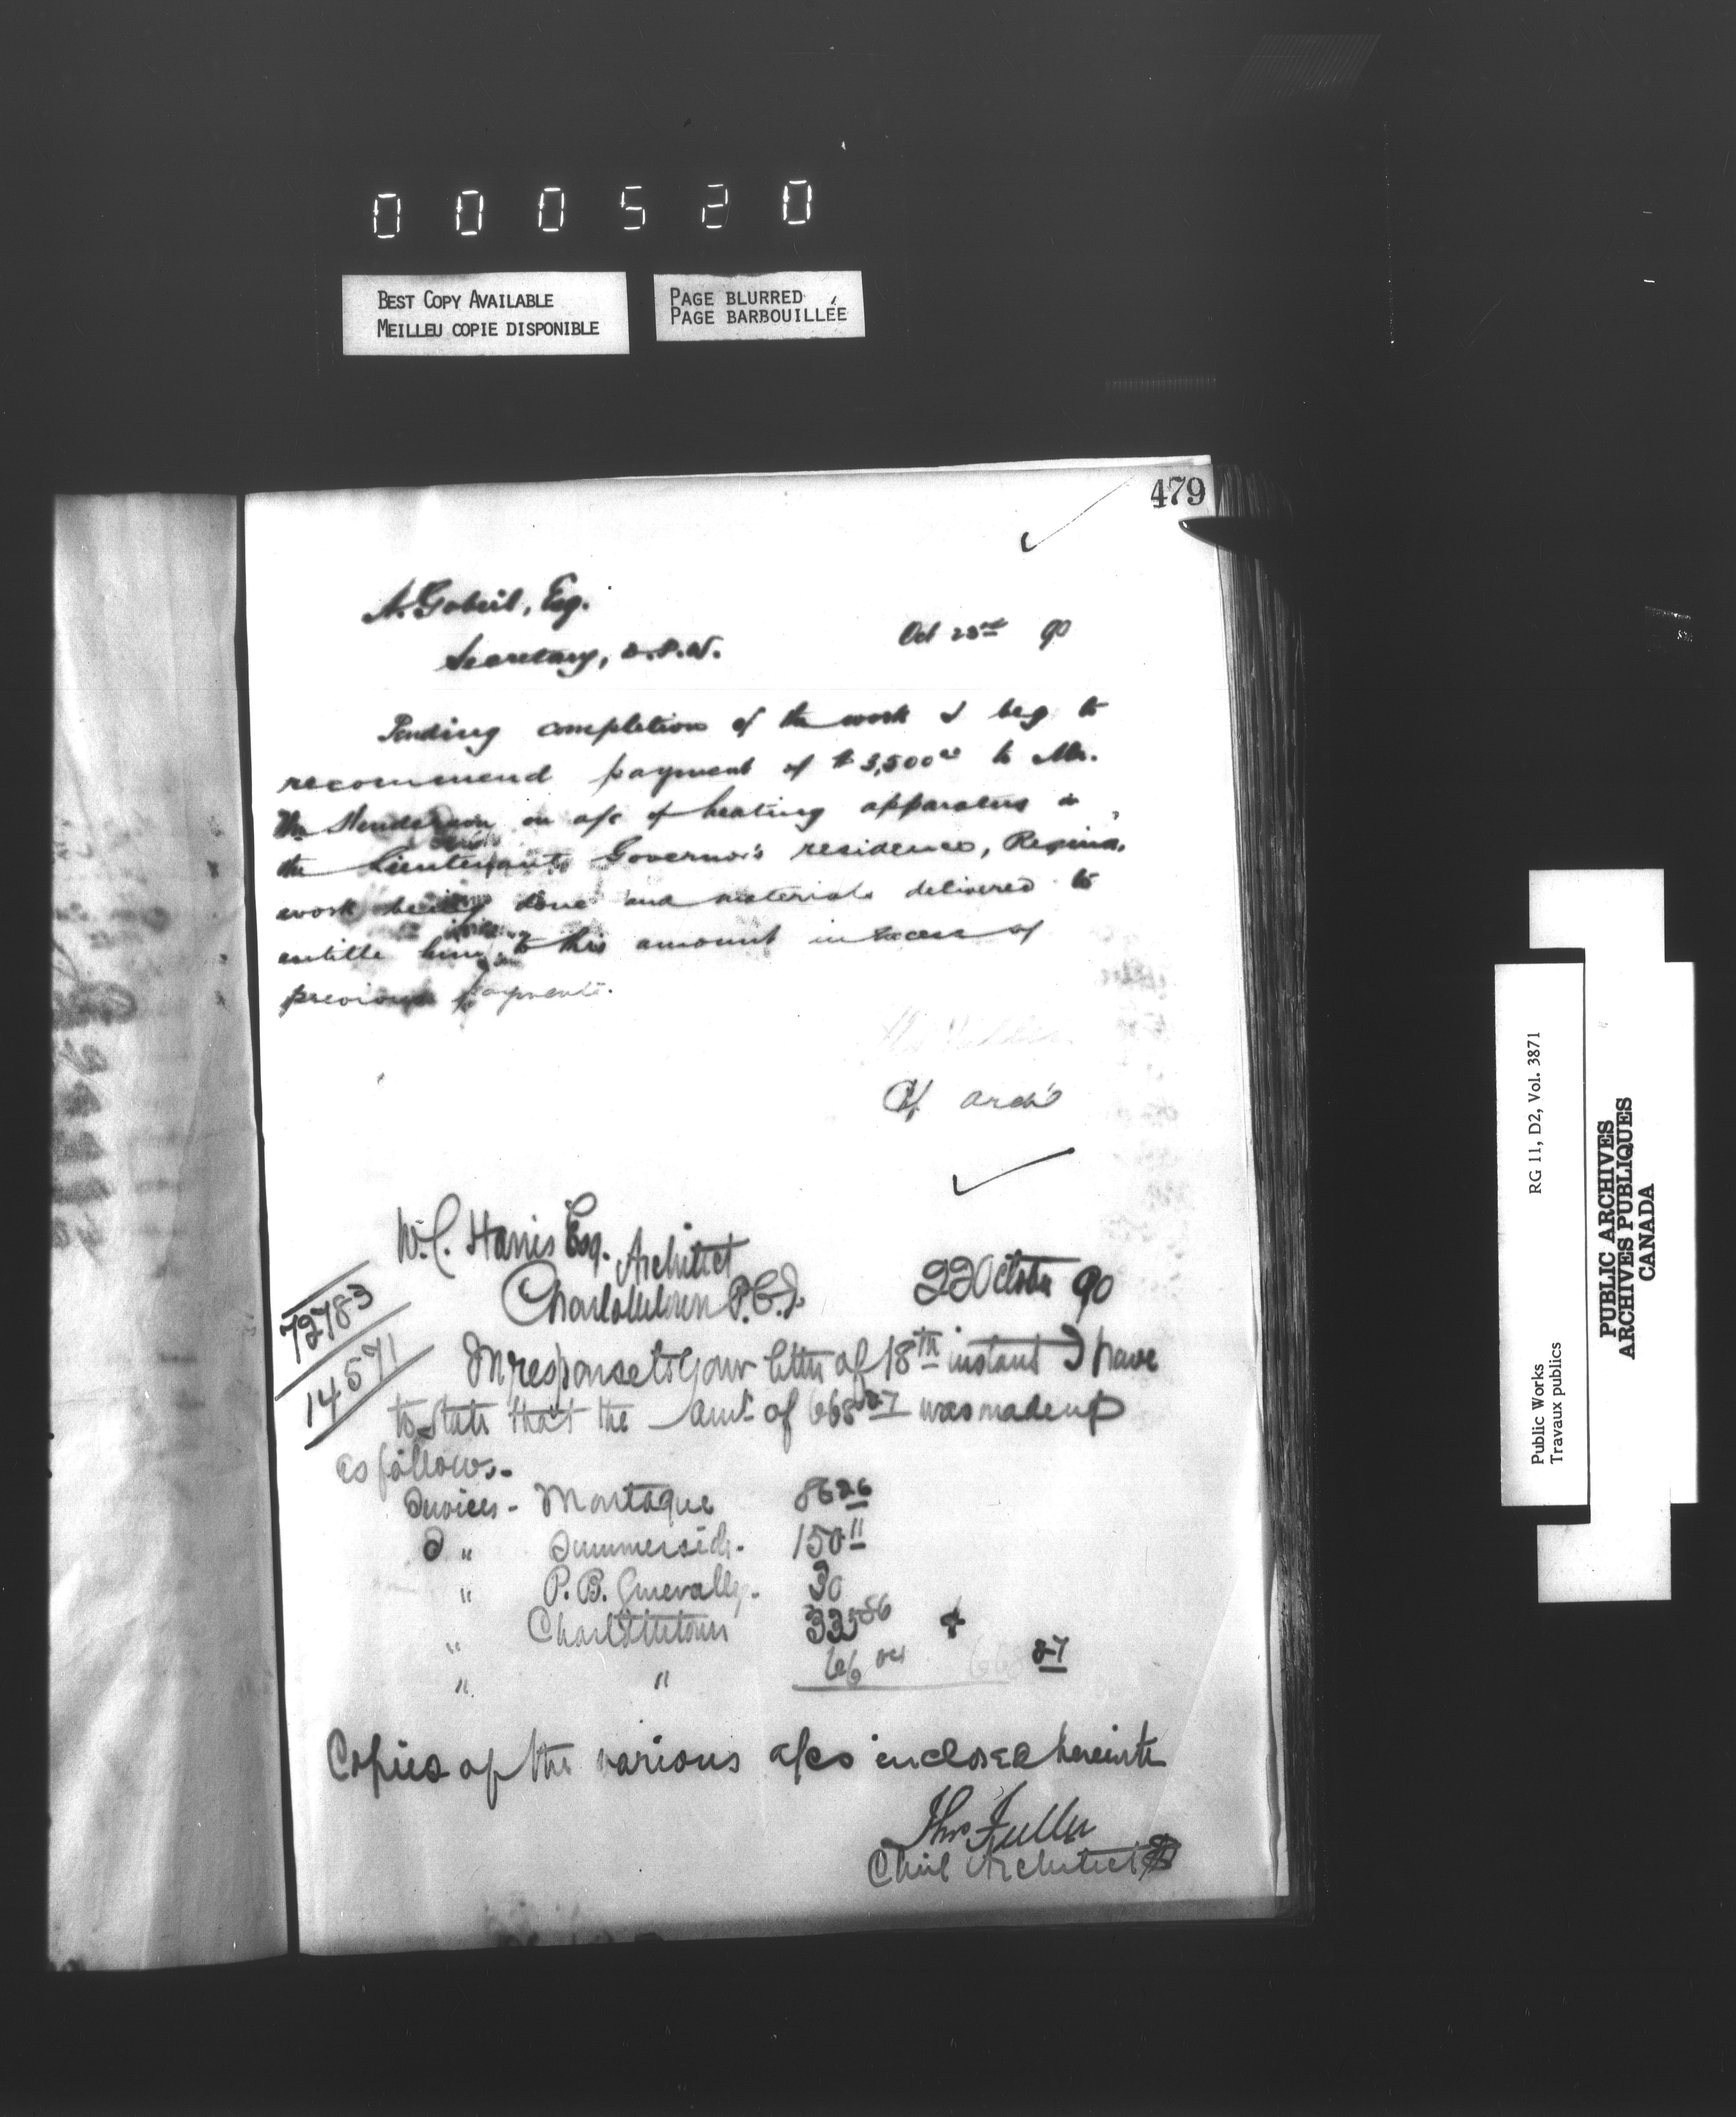 000520
BEST COPY AVAILABLE
MEILLEU COPIE DISPONIBLE
PAGE BLURRED
PAGE BARBOUILLÉE
479
A. Gobeil, Esq.
Secretary, D.P.W.
Oct 23rd 90
Pending completion of the work I beg to
recommend payment of $3,500.00 to Mr.
Wm Henderson on a/c of heating apparatus in
the Lieutenant Governor's residence, Regina,
work being done and materials delivered to
entitle him to this amount in excess of
previous payments.
Ch. Arch't
W. C. Harris Esq. Architect
Charlottetown P.E.I.
22 October 90
72783
14571
In response to your letter of 18th instant I have
to state that the amt of 668 27 was made up
as follows.
Services - Montague 86 26
" Summerside. 150 11
" P. B. 30
" Charlottetown 335 86
" " 66 04 668 27
Copies of the various a/cs inclosed hereinto
Thos Fuller
Chief Architect
RG 11, D2, Vol. 3871
Public Works
Travaux publics
PUBLIC ARCHIVES
ARCHIVES PUBLIQUES
CANADA